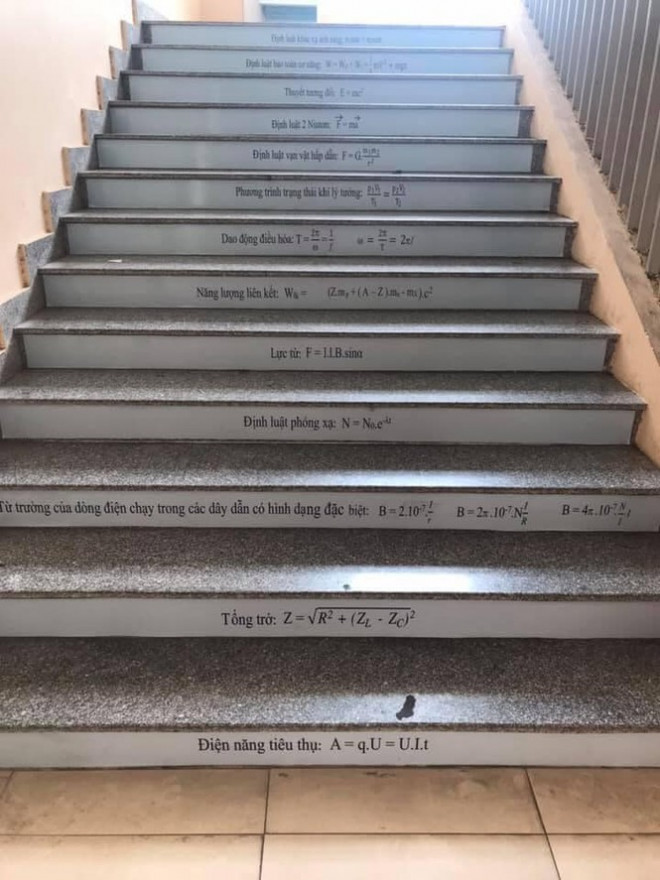 Định luật khúc xạ ánh sáng:
Định luật bảo toàn cơ năng: W = Wđ + Wt = ½mv² + mgz
Thuyết tương đối: E = mc²
Định luật 2 Niutơn: F⃗ = ma⃗
Định luật vạn vật hấp dẫn: F = G.m₁m₂/r²
Phương trình trạng thái khí lý tưởng: p₁V₁/T₁ = p₂V₂/T₂
Dao động điều hòa: T = 2π/ω = 1/f ω = 2π/T = 2πf
Năng lượng liên kết: Wlk = (Z.mp + (A – Z).mn - mX).c²
Lực từ: F = I.l.B.sinα
Định luật phóng xạ: N = N₀.e^-λt
Từ trường của dòng điện chạy trong các dây dẫn có hình dạng đặc biệt: B = 2.10⁻⁷.I/r B = 2π.10⁻⁷.N I/R B = 4π.10⁻⁷.N/l.I
Tổng trở: Z = √R² + (Z_L - Z_C)²
Điện năng tiêu thụ: A = q.U = U.I.t